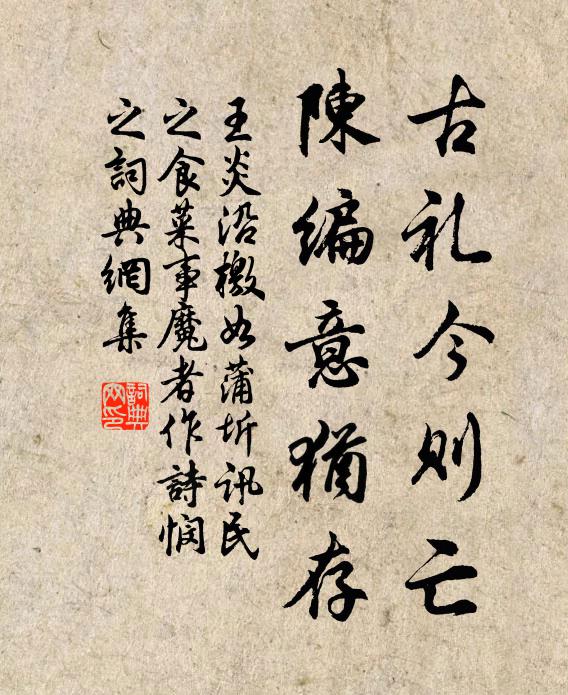 古礼今则亡
陳编意猶存
王炎沿檄如蒲圻讯民
之食菜事魔者作詩悯
之詞典網集
詞典
网印